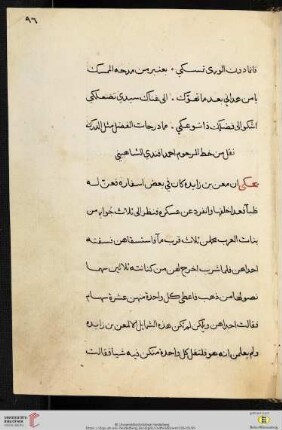 ٩٦
فانفادت الورى تمسكي . بعنبر من مدحه الممسك
يا من عداني بعد ما تحرك . الى غناك سيدي تصعلكي
اشكو الى فضلك ذا توعكي . ما درجات الفضل مثل الدرك
نقل من خط المرحوم احمد افندي الشاهيني
حكى ان معن بن زايده كان في بعض اسفاره فعرضت له
ظبا فعدا خلفها وانفرد عن عسكره فنظر الى ثلاث جوار من
بنات العرب يحملن ثلاث قرب ماء فاستسقاهن فسقته
احداهن فلما شرب اخرج لهن من كنانته ثلاثين سهما
نصولها من ذهب فاعطى كل واحدة منهن عشرة سهام
فقالت احداهن ويلكن لم تكن هذه الشمايل الا لمعن بن زايده
ولم يعلمن انه هو فلتقل كل واحدة منكن فيه شيا فقالت